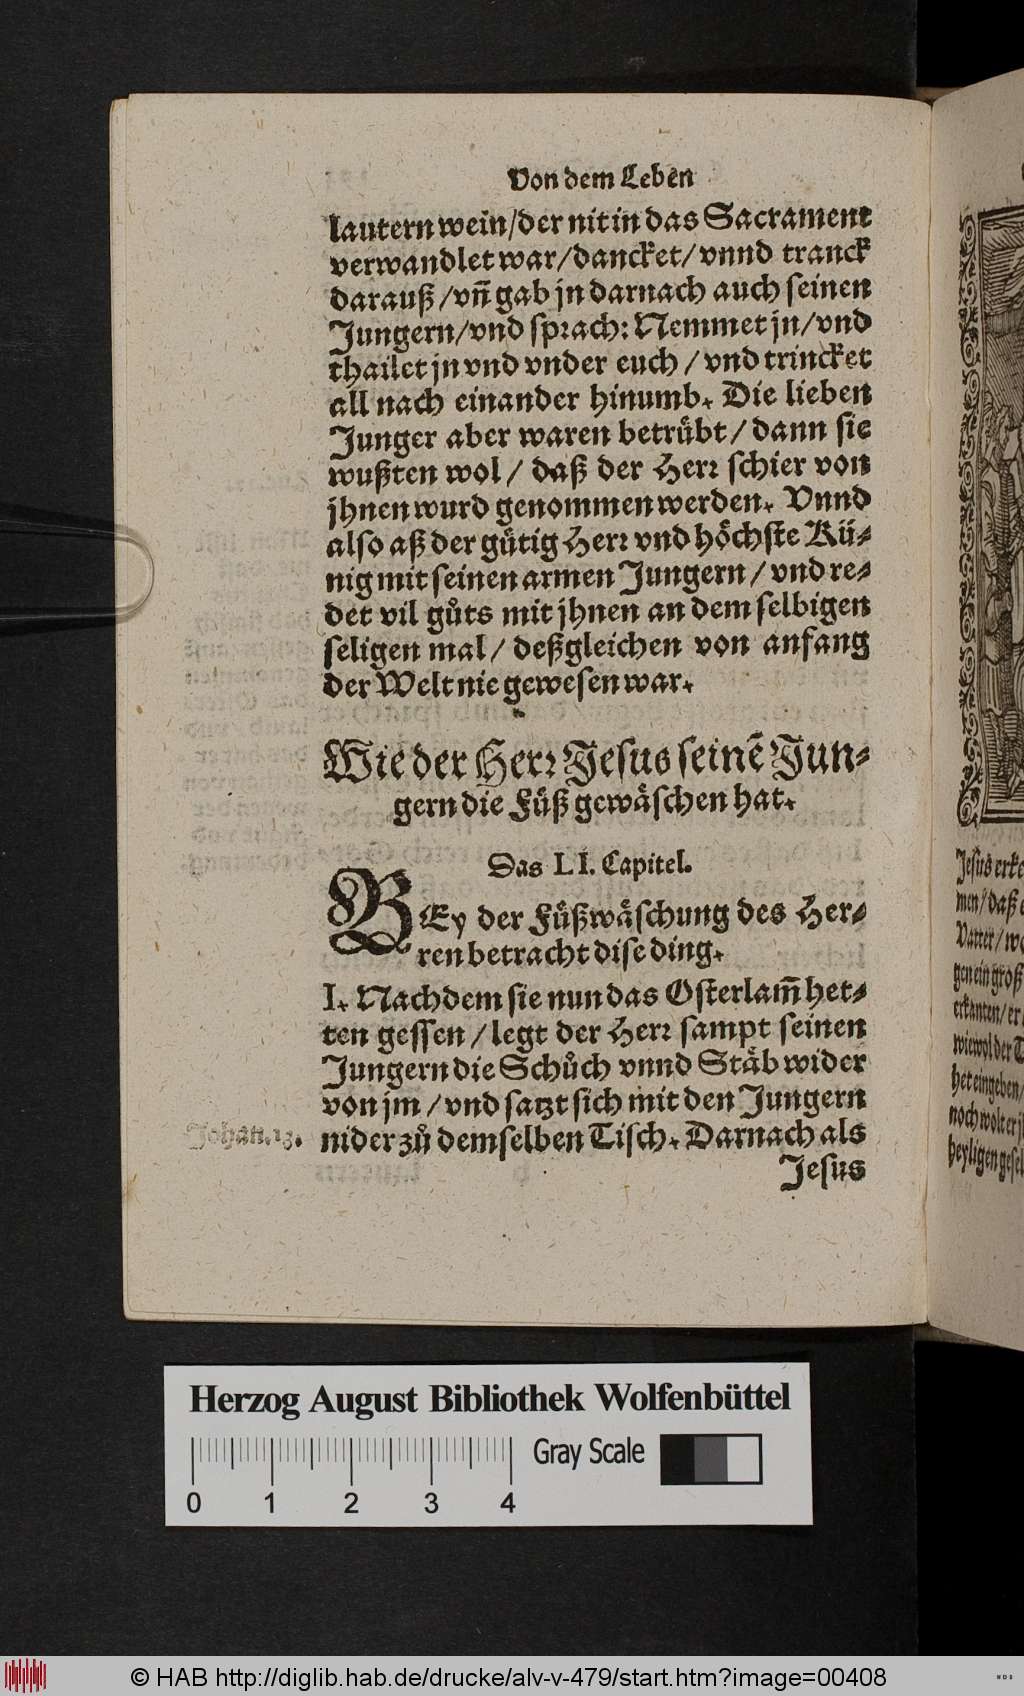 Von dem Leben
lautern wein/der nit in das Sacrament
verwandlet war/dancket/vnnd tranck
darauß/vñ gab jn darnach auch seinen
Jungern/vnd sprach: Nemmet jn/vnd
thailet jn vnd vnder euch/vnd trincket
all nach einander hinumb. Die lieben
Junger aber waren betrübt/dann sie
wußten wol/daß der Herr schier von
jhnen wurd genommen werden. Vnnd
also aß der gütig Herr vnd höchste Kü-
nig mit seinen armen Jungern/vnd re-
det vil gůts mit jhnen an dem selbigen
seligen mal/deßgleichen von anfang
der Welt nie gewesen war.
Wie der Herr Jesus seinẽ Jun-
gern die Füß gewäschen hat.
Das LI. Capitel.
BEy der Füßwäschung des Her-
ren betracht dise ding.
I. Nachdem sie nun das Osterlam̃ het-
ten gessen/legt der Herr sampt seinen
Jungern die Schůch vnnd Stäb wider
von jm/vnd satzt sich mit den Jungern
Johan. 13. nider zů demselben Tisch. Darnach als
Jesus
Jesus erke
men/daß
Vatter/wo
gen ein groß
erkanten/er
wiewol der T
het eingeben/
noch wolt er j
heyligen gesel
Herzog August Bibliothek Wolfenbüttel
Gray Scale
0 1 2 3 4
© HAB http://diglib.hab.de/drucke/alv-v-479/start.htm?image=00408